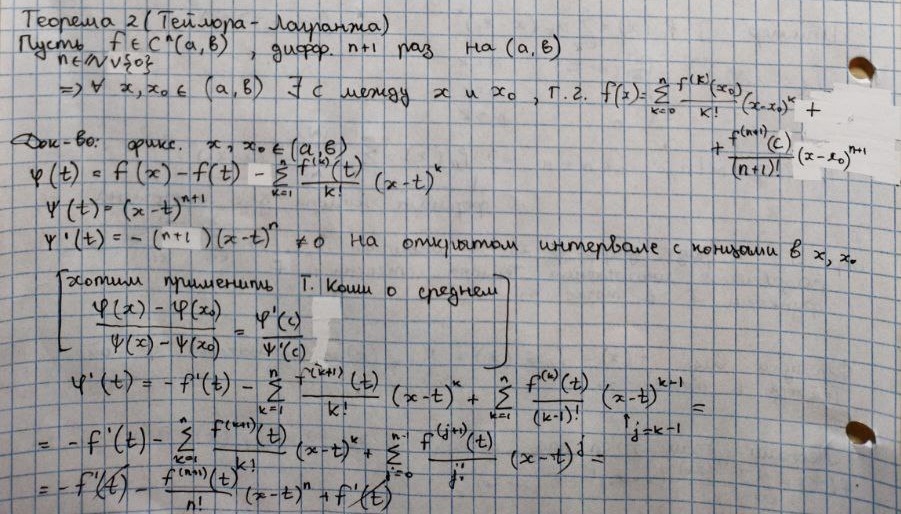 Теорема 2 (Тейлора - Лагранжа)
Пусть f ∈ Cⁿ(a, b), дифф. n+1 раз на (a, b)
n ∈ ℕ ∪ {0}
=> ∀ x, x₀ ∈ (a, b) ∃ c между x и x₀, т.г. f(x) = Σ_{k=0}^{n} f^{(k)}(x₀)/k! (x-x₀)^k +
+ f^{(n+1)}(c)/(n+1)! (x-x₀)^{n+1}
Док-во: фикс. x, x₀ ∈ (a, b)
φ(t) = f(x) - f(t) - Σ_{k=1}^{n} f^{(k)}(t)/k! (x-t)^k
ψ(t) = (x-t)^{n+1}
ψ'(t) = -(n+1)(x-t)^n ≠ 0 на открытом интервале с концами в x, x₀
[хотим применить Т. Коши о среднем
(φ(x) - φ(x₀))/(ψ(x) - ψ(x₀)) = φ'(c)/ψ'(c)]
φ'(t) = -f'(t) - Σ_{k=1}^{n} f^{(k+1)}(t)/k! (x-t)^k + Σ_{k=1}^{n} f^{(k)}(t)/(k-1)! (x-t)^{k-1} =
↑ j=k-1
= -f'(t) - Σ_{k=1}^{n} f^{(k+1)}(t)/k! (x-t)^k + Σ_{j=0}^{n-1} f^{(j+1)}(t)/j! (x-t)^j =
= -f'(t) - f^{(n+1)}(t)/n! (x-t)^n + f'(t)